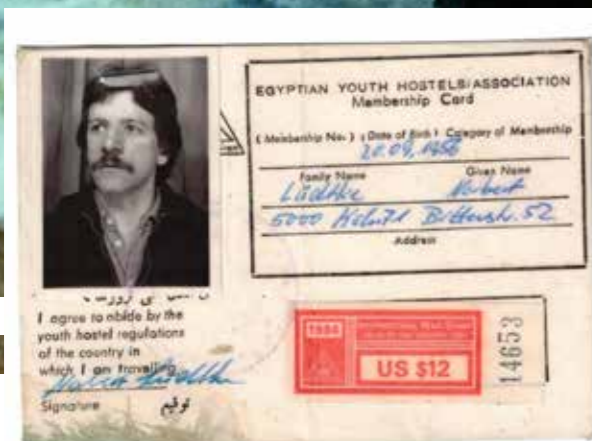 EGYPTIAN YOUTH HOSTELS' ASSOCIATION
Membership Card
( Membership No. ) ( Date of Birth ) Category of Membership
20.09.1958
Family Name Given Name
Lüdtke Norbert
5000 Köln 71
Address
I agree to abide by the
youth hostel regulations
of the country in
which I am travelling
Norbert Lüdtke
Signature توقيع
US $12
14653